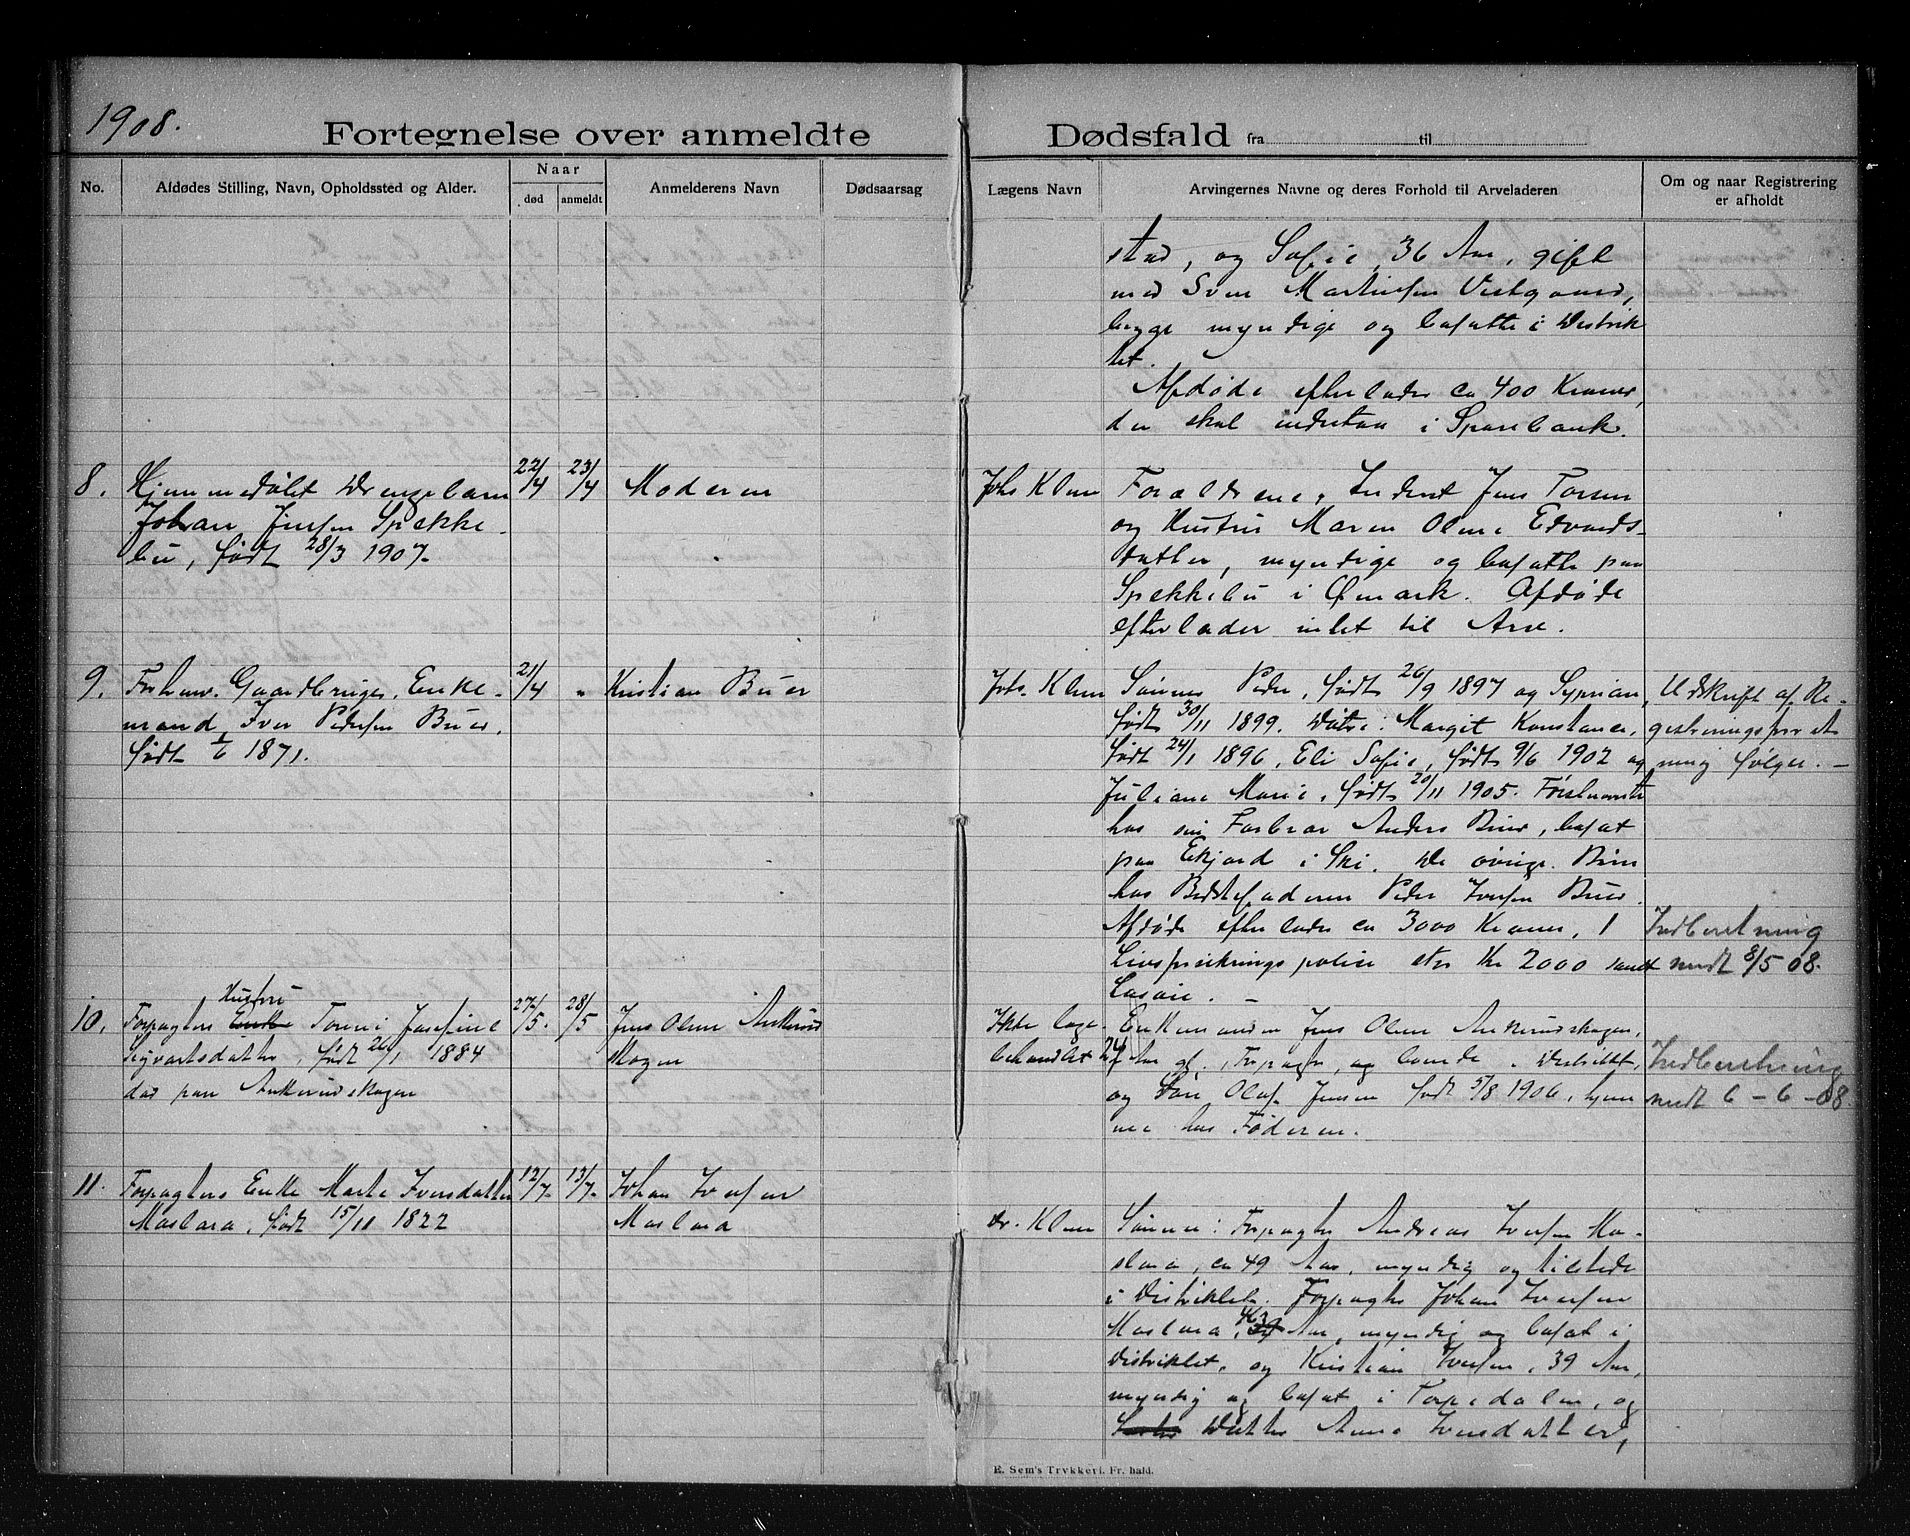 1908.
Fortegnelse over anmeldte Dødsfald fra til
No.
Afdødes Stilling, Navn, Opholdssted og Alder.
Naar
død
anmeldt
Anmelderens Navn
Dødsaarsag
Lægens Navn
Arvingernes Navne og deres Forhold til Arveladeren
Om og naar Registrering
er afholdt
stad, og Sofie, 36 Aar, gift
med Sven Martinsen Vestgaard,
begge myndige og bosatte i Distrik
tet.
Afdøde efterlader ca 400 Kroner,
der skal indestaa i Sparebank.
8.
Hjemmedøbt Drengebarn
Johan Jensen Spekke-
bu, født 28/3 1907.
22/4
23/4
Moderen
Johs Klem
Forældrene, Inderst Jens Torsen
og Hustru Maren Oline Edvards-
datter, myndige og bosatte paa
Spekkebu i Ømark. Afdøde
efterlader intet til Arv.
9.
Forhenv. Gaardbruger, Enke-
mand Iver Pedersen Buer,
født 1/6 1871.
21/4
"
Kristian Buer
Johs. Klem
Sønner Peder, født 26/9 1897 og Syprian,
født 30/11 1899. Døtre: Margit Konstance,
født 24/1 1896, Eli Sofie, født 9/6 1902 og
Juliane Marie, født 20/11 1905. Førstnævnte
hos sin Farbror Anders Buer, bosat
paa Ekjord i Ski. De øvrige Børn
hos Bedstefaderen Peder Iversen Buer.
Afdøde efterlader ca 3000 Kroner, 1
Livsforsikringspolise stor Kr 2000 samt
Løsøre. –
Udskrift af Re-
gistreringsforret
ning følger. –
Indberetning
sendt 8/5 08.
10.
Hustru
Forpagters Enke Tomine Josefine
Sigvartsdatter, født 26/1 1884
død paa Ankerudskogen
27/5.
28/5
Jens Olsen Ankerud
skogen
Ikke læge-
behandlet
Enkemanden Jens Olsen Ankerudskogen,
24 Aar gl., Forpagter, og boende i Distriktet,
og Søn Olaf Jensen født 5/8 1906, hjem
me hos Faderen.
Indberetning
sendt 6 – 6 – 08.
11.
Forpagters Enke Marte Iversdatter
Moslora, født 15/11 1822
12/7.
13/7.
Johan Iversen
Moslora
Dr. Klem
Sønner: Forpagter Andreas Iversen Mo-
slora, ca 49 Aar, myndig og tilstede
i Distriktet. Forpagter Johan Iversen
Moslora, 43 Aar, myndig og bosat i
Distriktet, og Kristian Iversen, 39 Aar,
myndig og bosat i Torpedalen, og
Datter Anne Iversdatter,
E. Sem's Trykkeri. Fr.hald.